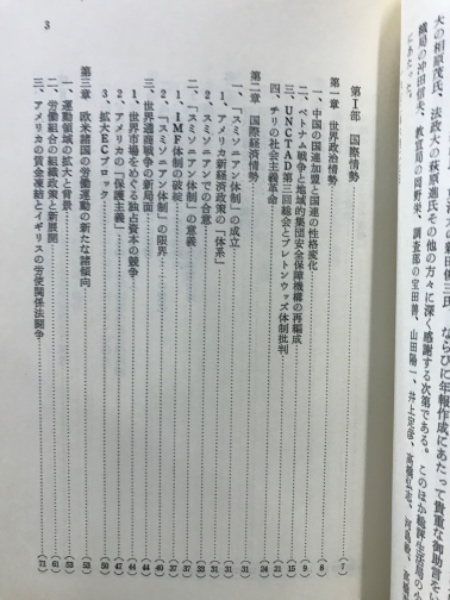 大の相原茂氏、法政大の萩原進氏その他の方々に深く感謝する次第である。このほか総評生活局の
ならびに年報作成にあたって貴重な御助言をい
織局の沖田信夫、教宣局の岡野栄、調査部の宝田善、山田陽一、
にあたった。
3
第Ⅰ部 国際情勢
第一章 世界政治情勢 (7)
一、中国の国連加盟と国連の性格変化 (8)
二、ベトナム戦争と地域的集団安全保障機構の再編成 (9)
三、UNCTAD第三回総会とブレトンウッズ体制批判 (15)
四、チリの社会主義革命 (21)
第二章 国際経済情勢
一、「スミソニアン体制」の成立 (31)
1、アメリカ新経済政策の「体系」 (31)
2、スミソニアンでの合意
二、「スミソニアン体制」の意義 (37)
1、IMF体制の破綻 (37)
2、「スミソニアン体制」の限界 (40)
三、世界通商戦争の新局面 (44)
1、世界市場をめぐる独占資本の競争 (44)
2、アメリカの「保護主義」 (47)
3、拡大ECブロック (50)
第三章 欧米諸国の労働運動の新たな諸傾向 (53)
一、運動領域の拡大と背景 (53)
二、労働組合の組織政策と新展開 (61)
三、アメリカの賃金凍結とイギリスの労使関係法闘争 (71)